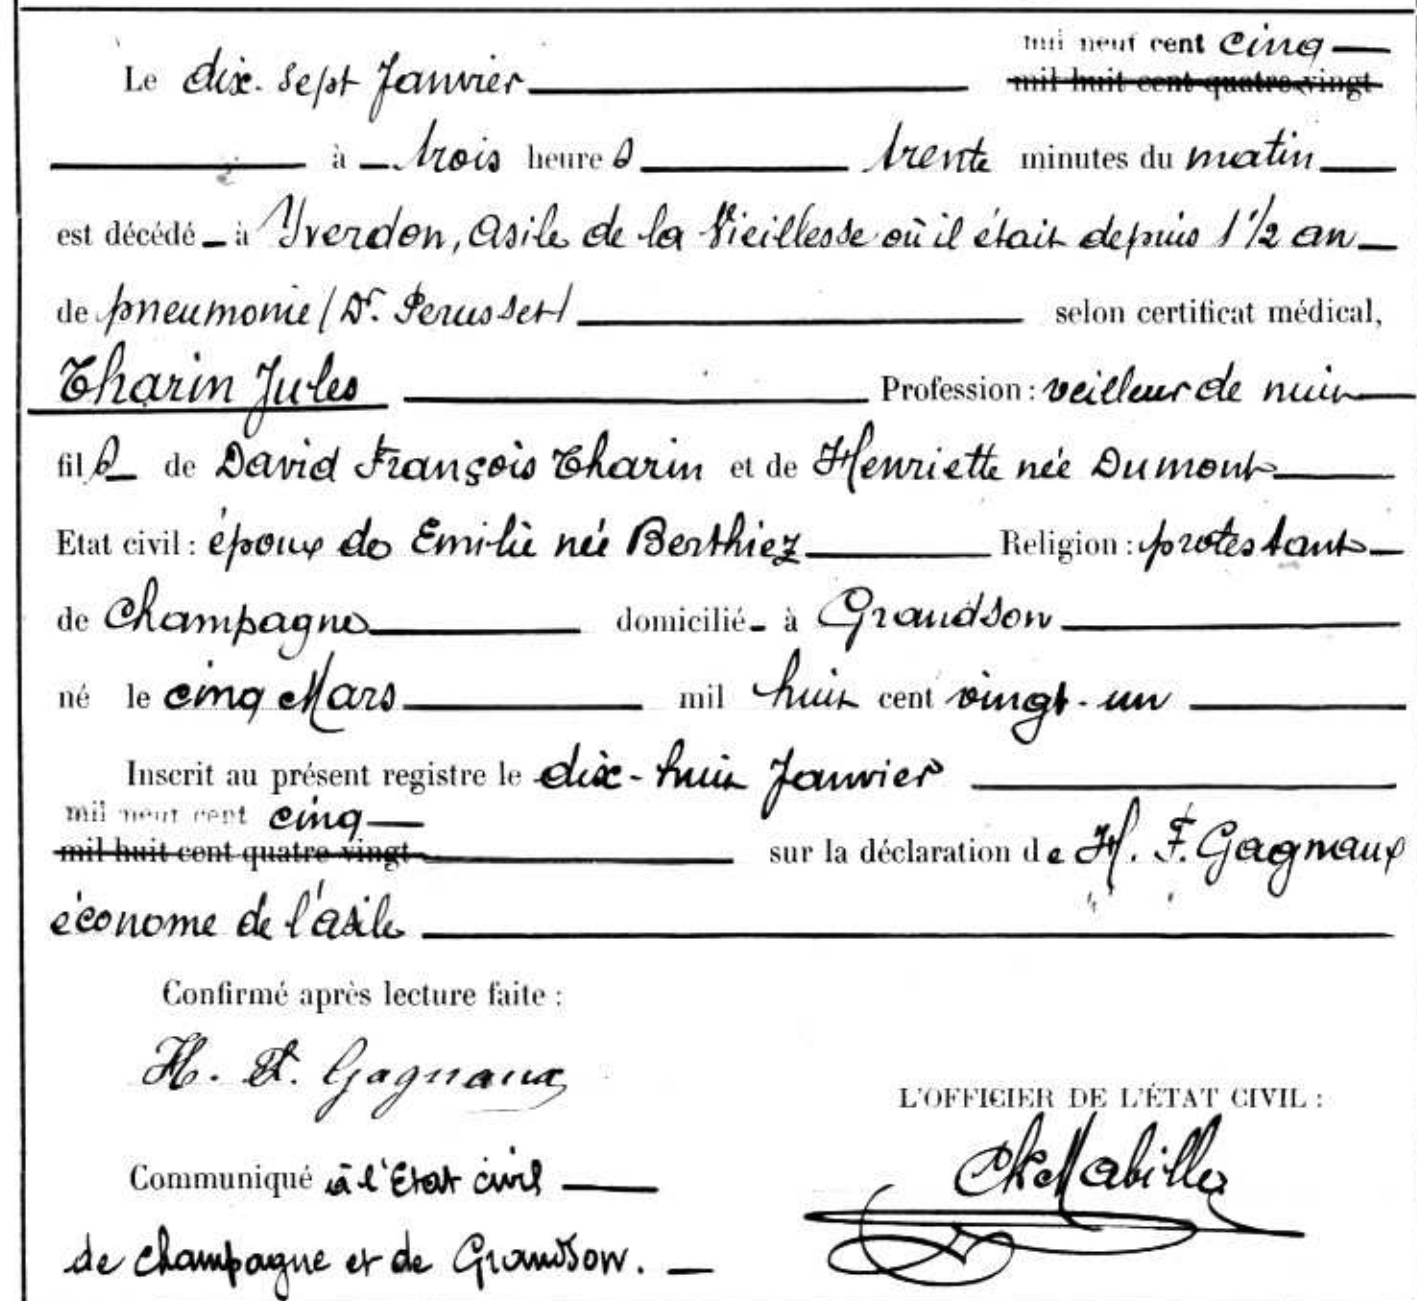 mil neuf cent cinq
Le dix-sept Janvier mil huit cent quatre-vingt
à trois heures trente minutes du matin
est décédé à Yverdon, asile de la Vieillesse où il était depuis 1 1/2 an
de pneumonie (Dr. Perusset) selon certificat médical,
Tharin Jules Profession : veilleur de nuit
fils de David François Tharin et de Henriette née Dumont
Etat civil : époux de Emilie née Berthiez Religion : protestant
de Champagne domicilié à Grandson
né le cinq Mars mil huit cent vingt-un
Inscrit au présent registre le dix-huit Janvier
mil neuf cent cinq
mil huit cent quatre-vingt sur la déclaration de H. F. Gagnaux
économe de l'asile
Confirmé après lecture faite :
H. F. Gagnaux
L'OFFICIER DE L'ÉTAT CIVIL :
Ch Mabille
Communiqué à l'Etat civil
de Champagne et de Grandson.